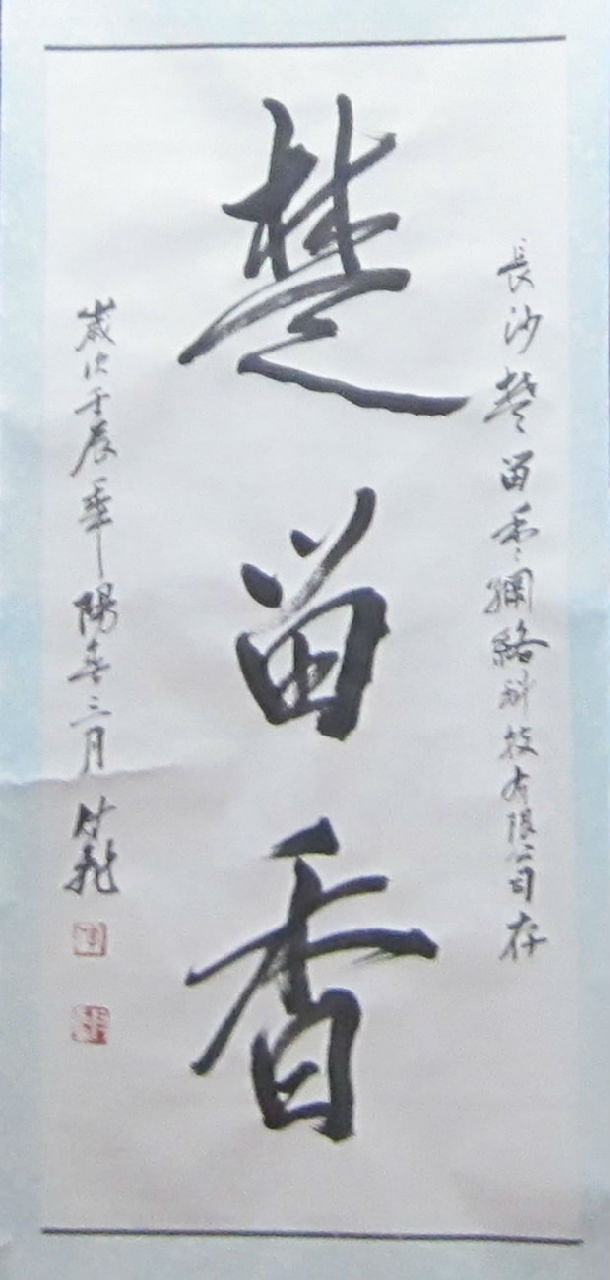 長沙楚苗香網絡科技有限公司存
楚苗香
歲次壬辰年華陽春三月